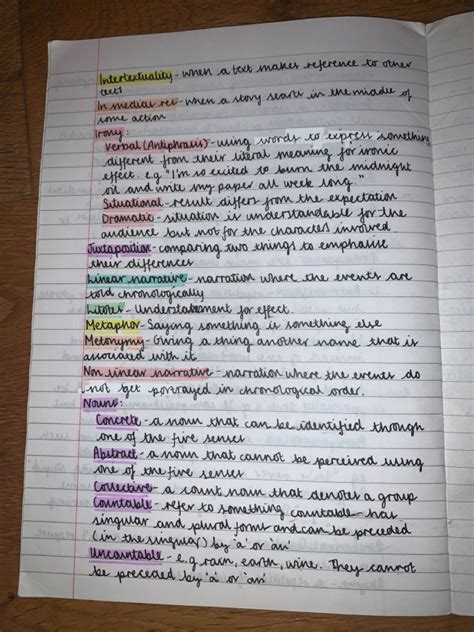 Intertextuality - when a text makes reference to other
text
In medias res - when a story starts in the middle of
some action
Irony:
Verbal (Antiphrasis) - using words to express something
different from their literal meaning for ironic
effect. e.g "I'm so excited to burn the midnight
oil and write my paper all week long."
Situational - result differs from the expectation
Dramatic - situation is understandable for the
audience but not for the characters involved.
Juxtaposition - comparing two things to emphasise
their differences
Linear narrative - narration where the events are
told chronologically
Litotes - Understatement for effect.
Metaphor - Saying something is something else
Metonymy - Giving a thing another name that is
associated with it.
Non linear narrative - narration where the events do
not get portrayed in chronological order.
Nouns:
Concrete - a noun that can be identified through
one of the five senses
Abstract - a noun that cannot be perceived using
one of the five senses
Collective - a count noun that denotes a group
Countable - refer to something countable - has
singular and plural forms and can be preceded
(in the singular) by 'a' or 'an'
Uncountable - e.g rain, earth, wine. They cannot
be preceded by 'a' or 'an'